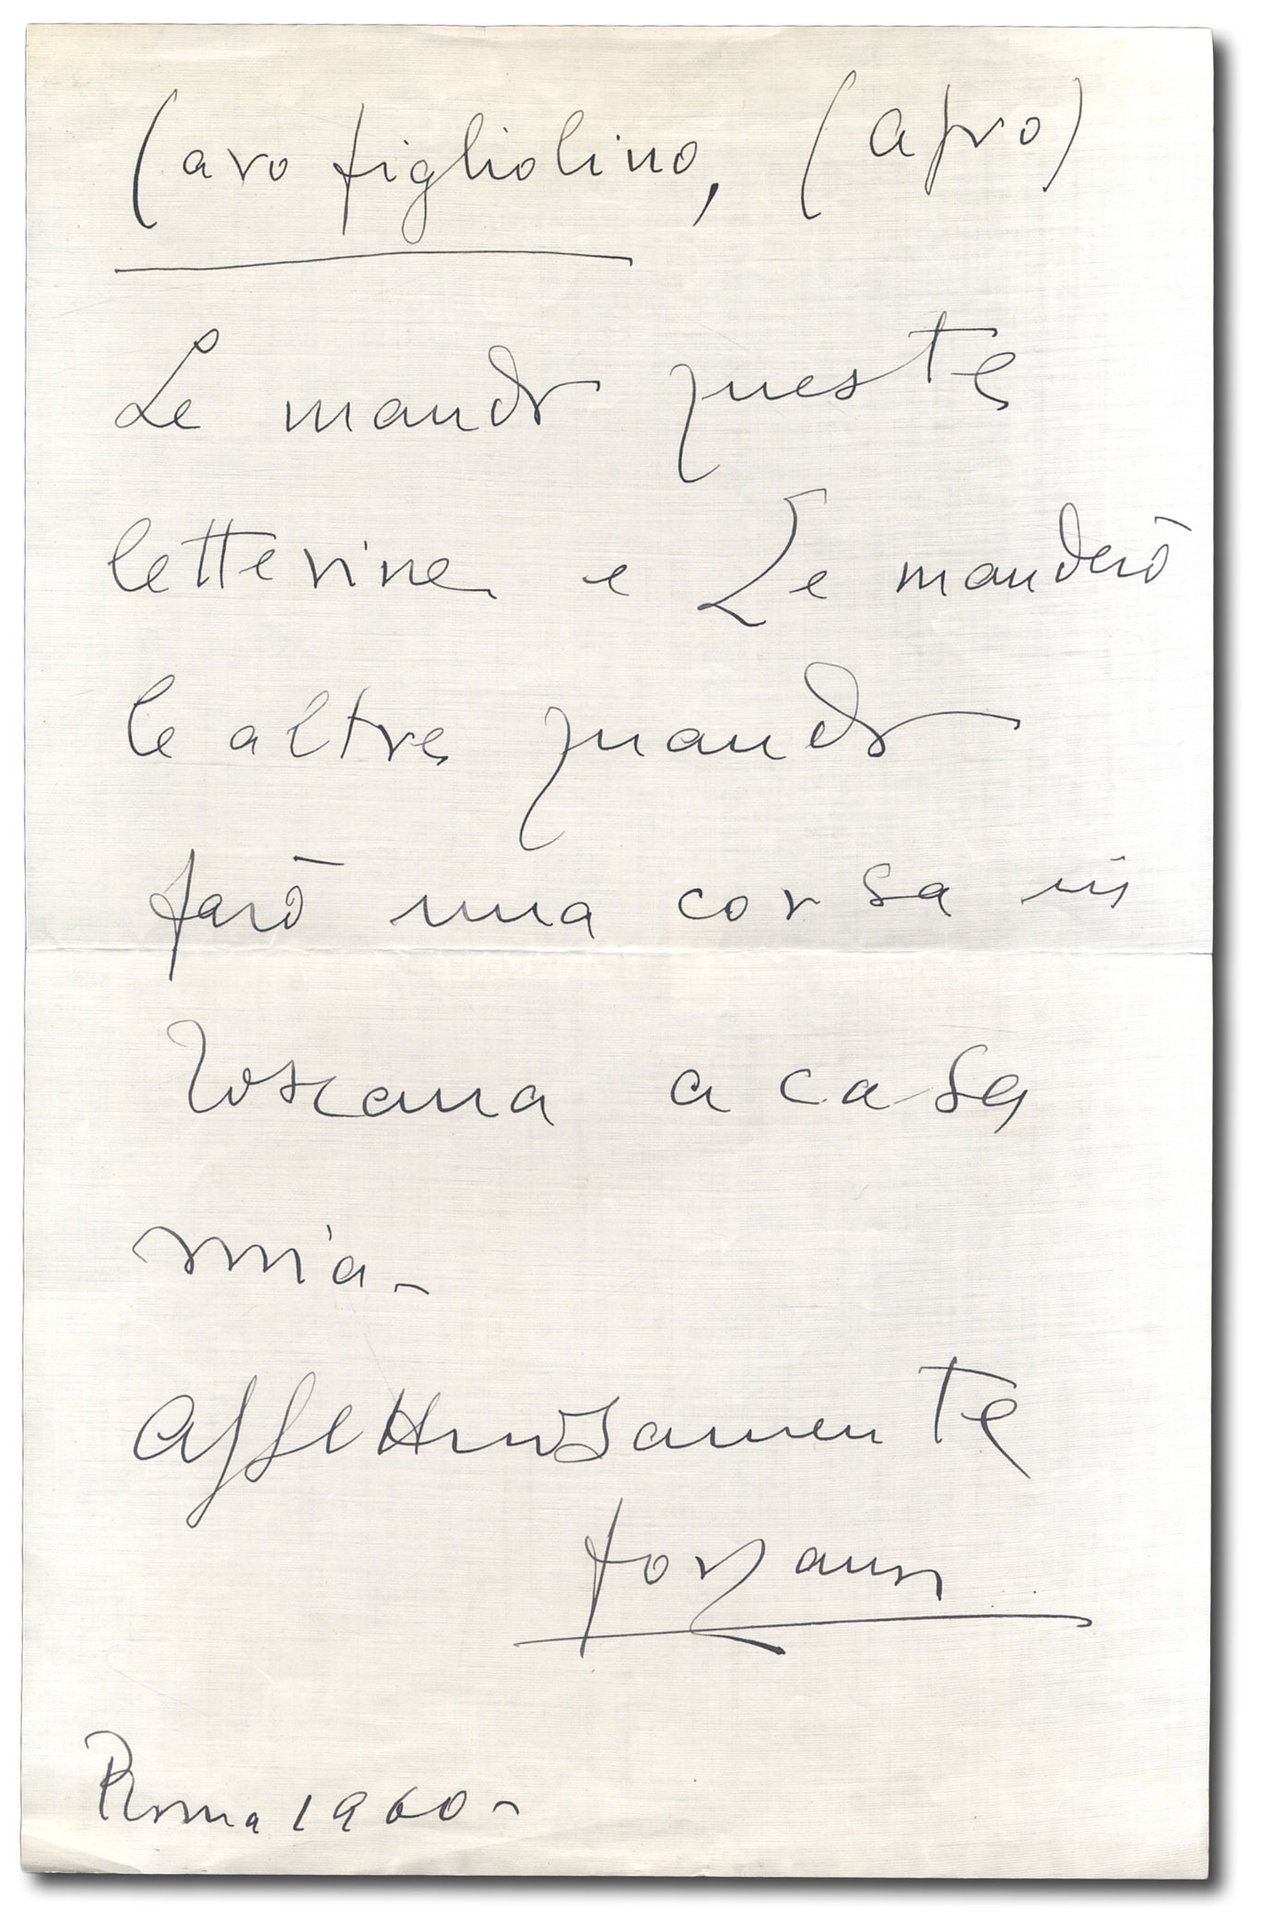 Caro figliolino, (apro)
Le mando queste
letterine e Le manderò
le altre quando
farò una corsa in
Toscana a casa
mia -
Affettuosamente
Forzano
Roma 1960 -